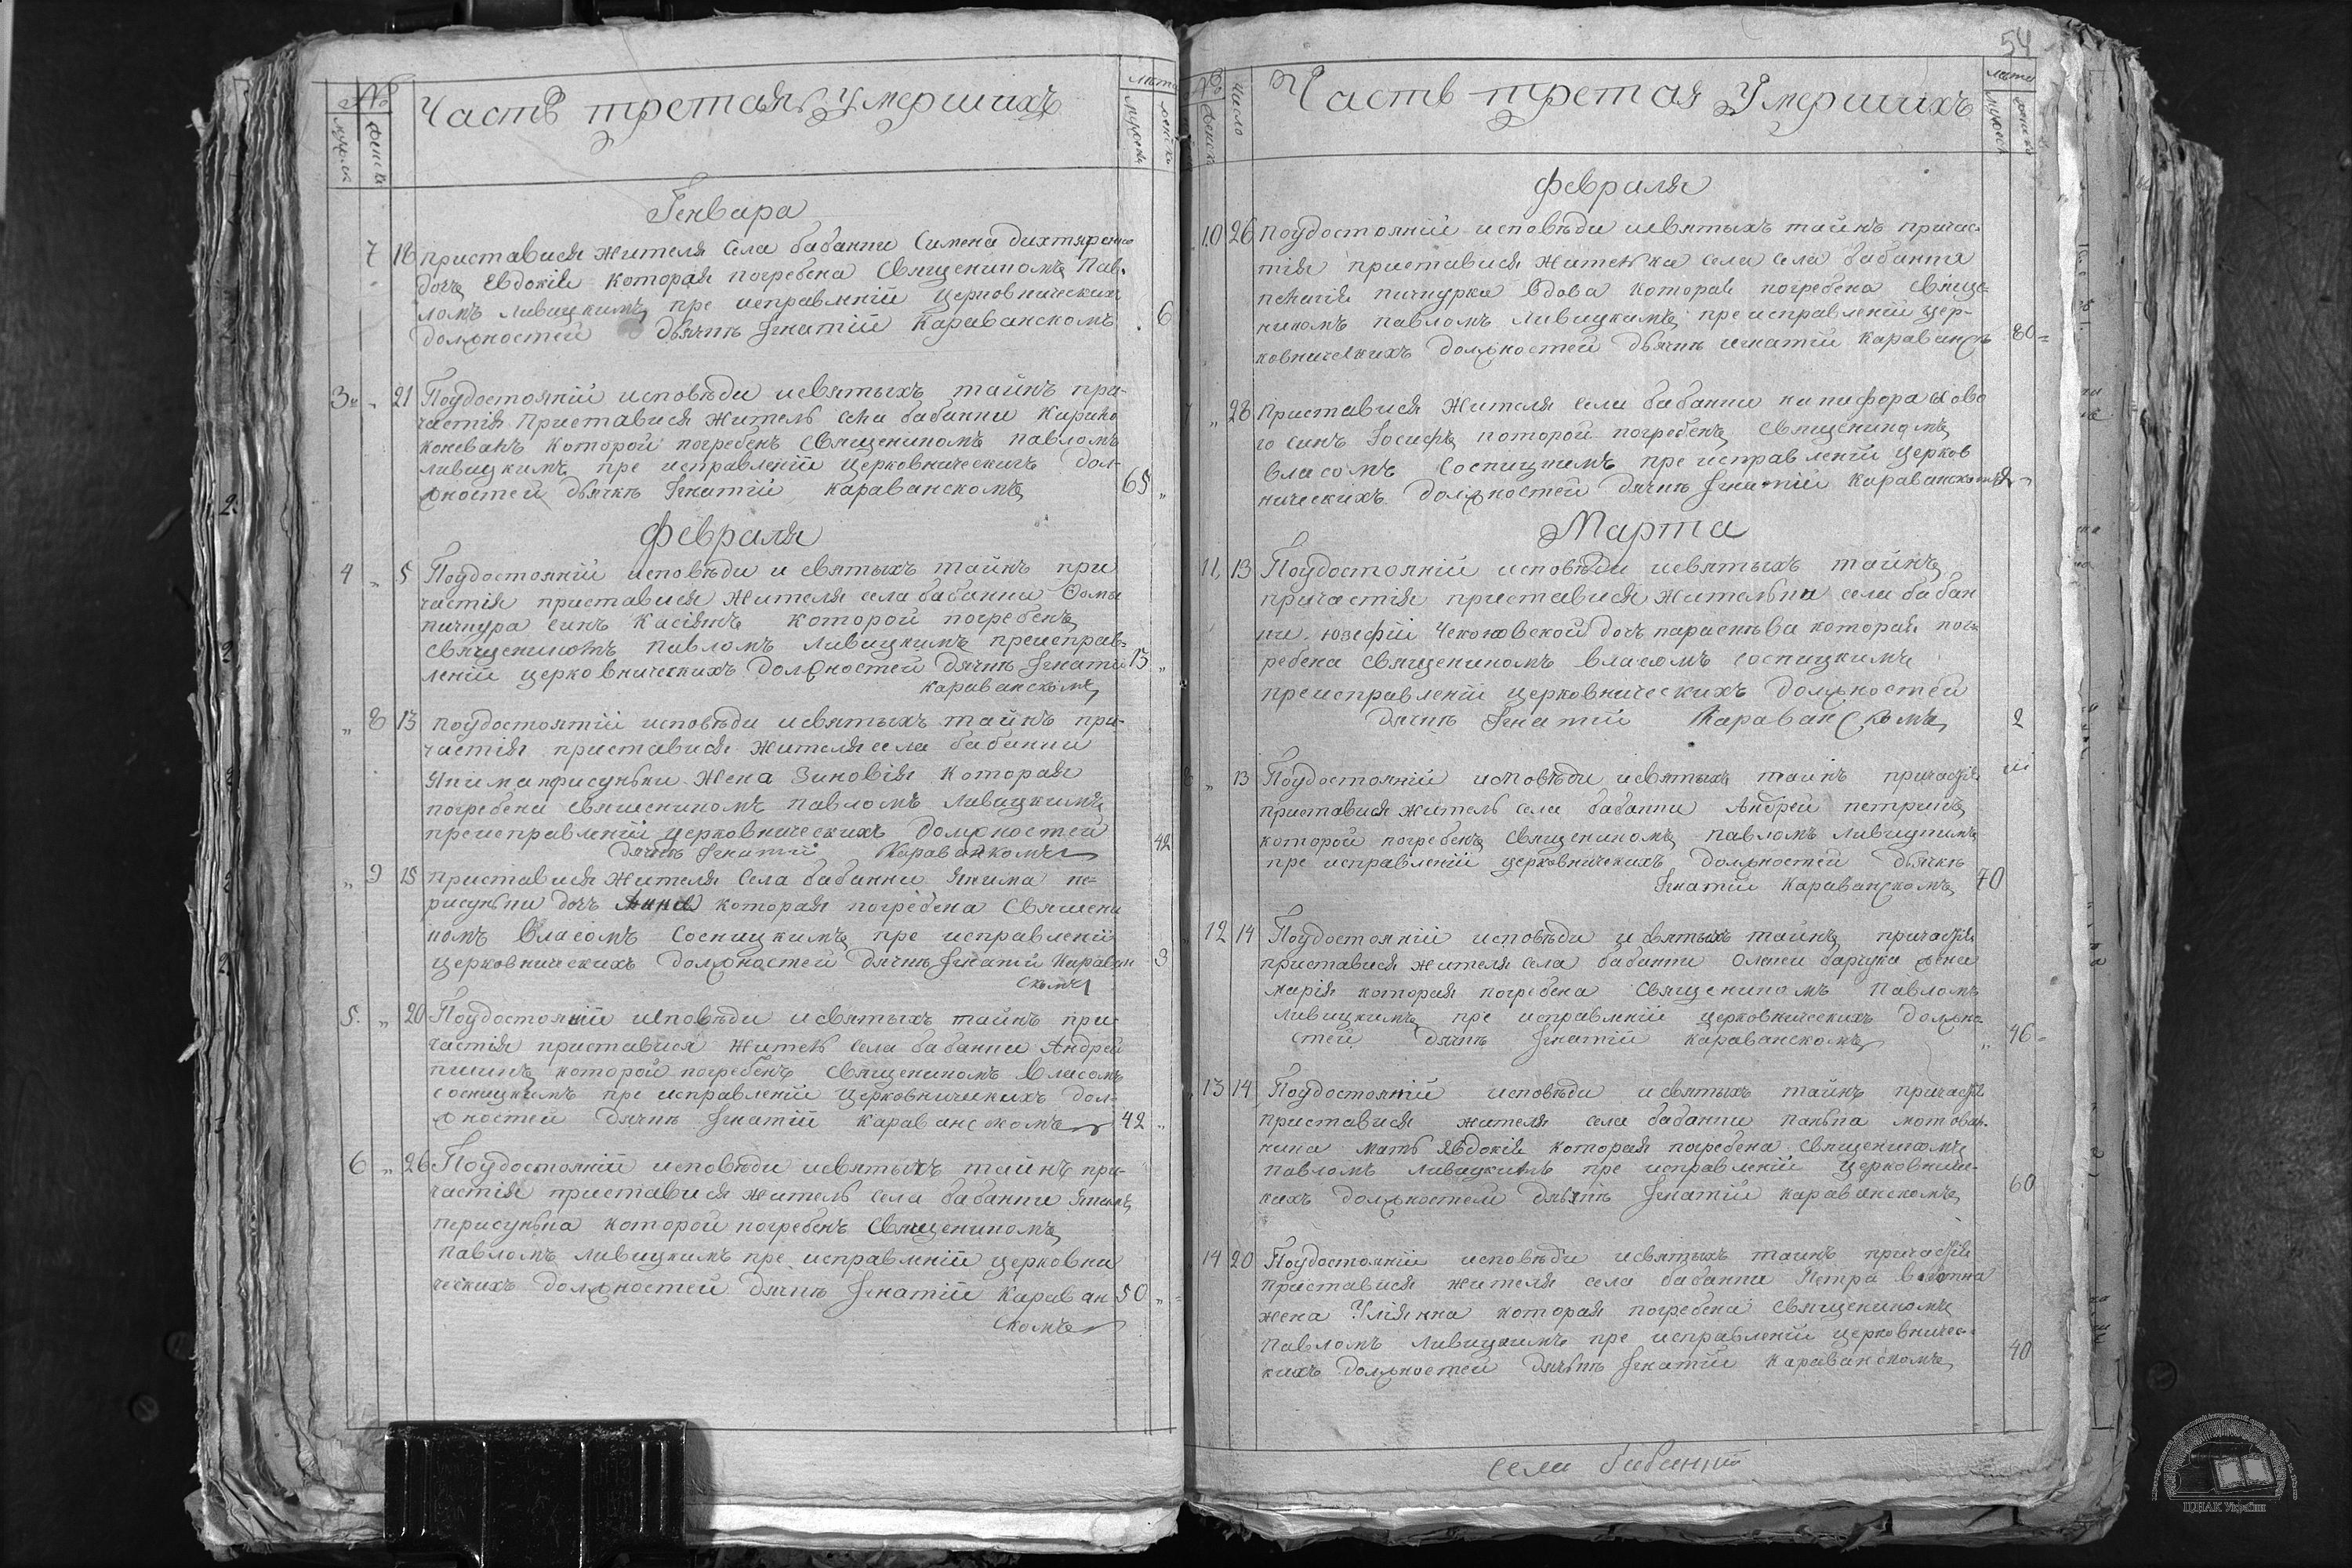 №
мужеска
женска
Часть третая Умершихъ
лета
мужеска
женска
Генвара
7 18 приставися жителя Села бабанки Симена дихтяренка
дочъ Евдокія которая погребена Священикомъ Пав-
ломъ Ливицкимъ пре исправленій церковническихъ
должностей дьячкѣ Ігнатій Караванскомъ 6
3 21 Поудостояній исповѣди исвятыхъ таинъ при-
частія Приставися житель села бабанки
которой погребенъ священикомъ павломъ
ливицкимъ пре исправленій церковническихъ дол-
жностей дьячкѣ Ігнатій караванскомъ 65
Февраля
4 5 Поудостояній исповѣди и святыхъ таинъ при
частія приставися жителя села бабанки Фомы
пичкура синъ Касіянъ которой погребенъ
священикомъ павломъ ливицкимъ преисправ-
леній церковническихъ должностей дячкѣ Ігнатій 13
караванскомъ
8 13 поудостояній исповѣди исвятыхъ таинъ при-
частія приставися жителя села бабанки
Якима жена Зиновія которая
погребена священикомъ павломъ ливицкимъ
преисправленій церковническихъ должностей 42
дячкѣ Ігнатій Караванскомъ
9 15 приставися жителя Села бабанки Якима пе-
рисунки дочъ Анна которая погребена Священи
комъ Власомъ Сосницкимъ пре исправленій
церковническихъ должностей дячкѣ Ігнатій Караван 9
скомъ
5. 20 Поудостояній исповѣди исвятыхъ таинъ при-
частія приставися житель села бабанки Андрей
которой погребенъ священикомъ Власомъ
сосницкимъ пре исправленій церковническихъ дол-
жностей дячкѣ Ігнатій караванскомъ 42
6 26 Поудостояній исповѣди исвятыхъ таинъ при-
частія приставися житель села бабанки Якимъ
перисунка которой погребенъ Священикомъ
павломъ ливицкимъ пре исправленій церковни
ческихъ должностей дячкѣ Ігнатій караван 50
скомъ
54
№
женска
Число
Часть третая Умершихъ
лета
мужеска
женска
Февраля
10 26 поудостояній исповѣди исвятыхъ таинъ причас-
тія приставися жителка села села бабанки
пелагія пичкурка вдова которая погребена свяще-
никомъ павломъ ливицкимъ преисправленій цер-
ковническихъ должностей дьячкѣ игнатій караванскъ 80
28 приставися жителя села бабанки никифора
го синъ Іосифъ которой погребенъ священикомъ
власомъ Сосницкимъ пре исправленій церков
ническихъ должностей дячкѣ Ігнатій Караванскомъ
Марта
11 13 Поудостояній исповѣди исвятыхъ таинъ
причастія приставися жителька села бабан
ки юзефій Чекоховской дочъ параскѣва которая пог-
ребена священикомъ власомъ сосницкимъ
преисправленій церковническихъ должностей
дячкѣ Ігнатій Караванскомъ 2
8 13 Поудостояній исповѣди исвятыхъ таинъ причастія
приставися житель села бабанки Андрей петринъ
которой погребенъ священикомъ павломъ ливицкимъ
пре исправленій церковническихъ должностей дьячкѣ
Ігнатій караванскомъ 70
12 14 Поудостояній исповѣди исвятыхъ таинъ причастія
приставися жителя села бабанки Олексѣ барчука жена
марія которая погребена Священикомъ павломъ
ливицкимъ пре исправленій церковническихъ должно
стей дячкѣ Ігнатій караванскомъ 46
13 14 Поудостояній исповѣди исвятыхъ таинъ причастія
приставися жителя села бабанки
мать явдокія которая погребена священикомъ
павломъ ливицкимъ пре исправленій церковничес-
кихъ должностей дячкѣ Ігнатій караванскомъ 60
14 20 Поудостояній исповѣди исвятыхъ таинъ причастія
приставися жителя села бабанки Петра
жена Уліянна которая погребена священикомъ
павломъ ливицкимъ пре исправленій церковничес-
кихъ должностей дячкѣ Ігнатій караванскомъ 40
села бабанки
ЦДІАК України